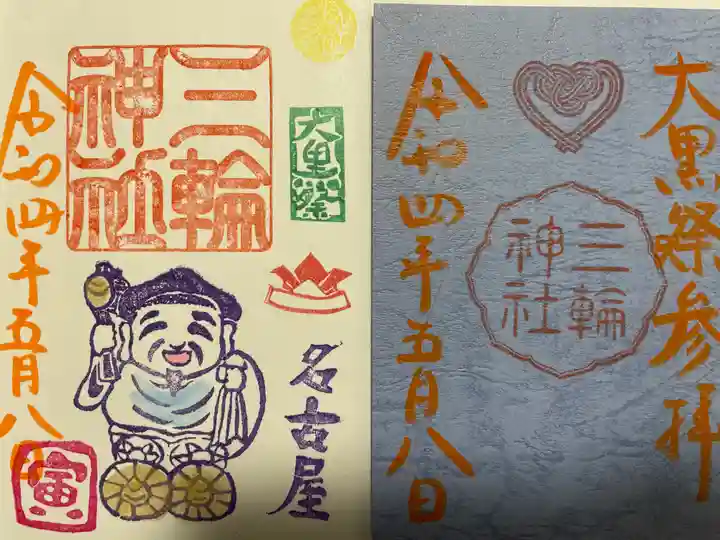 三輪
神社
大黒祭
名古屋
令和四年五月八日
寅
大黒祭参拝
三輪
神社
令和四年五月八日